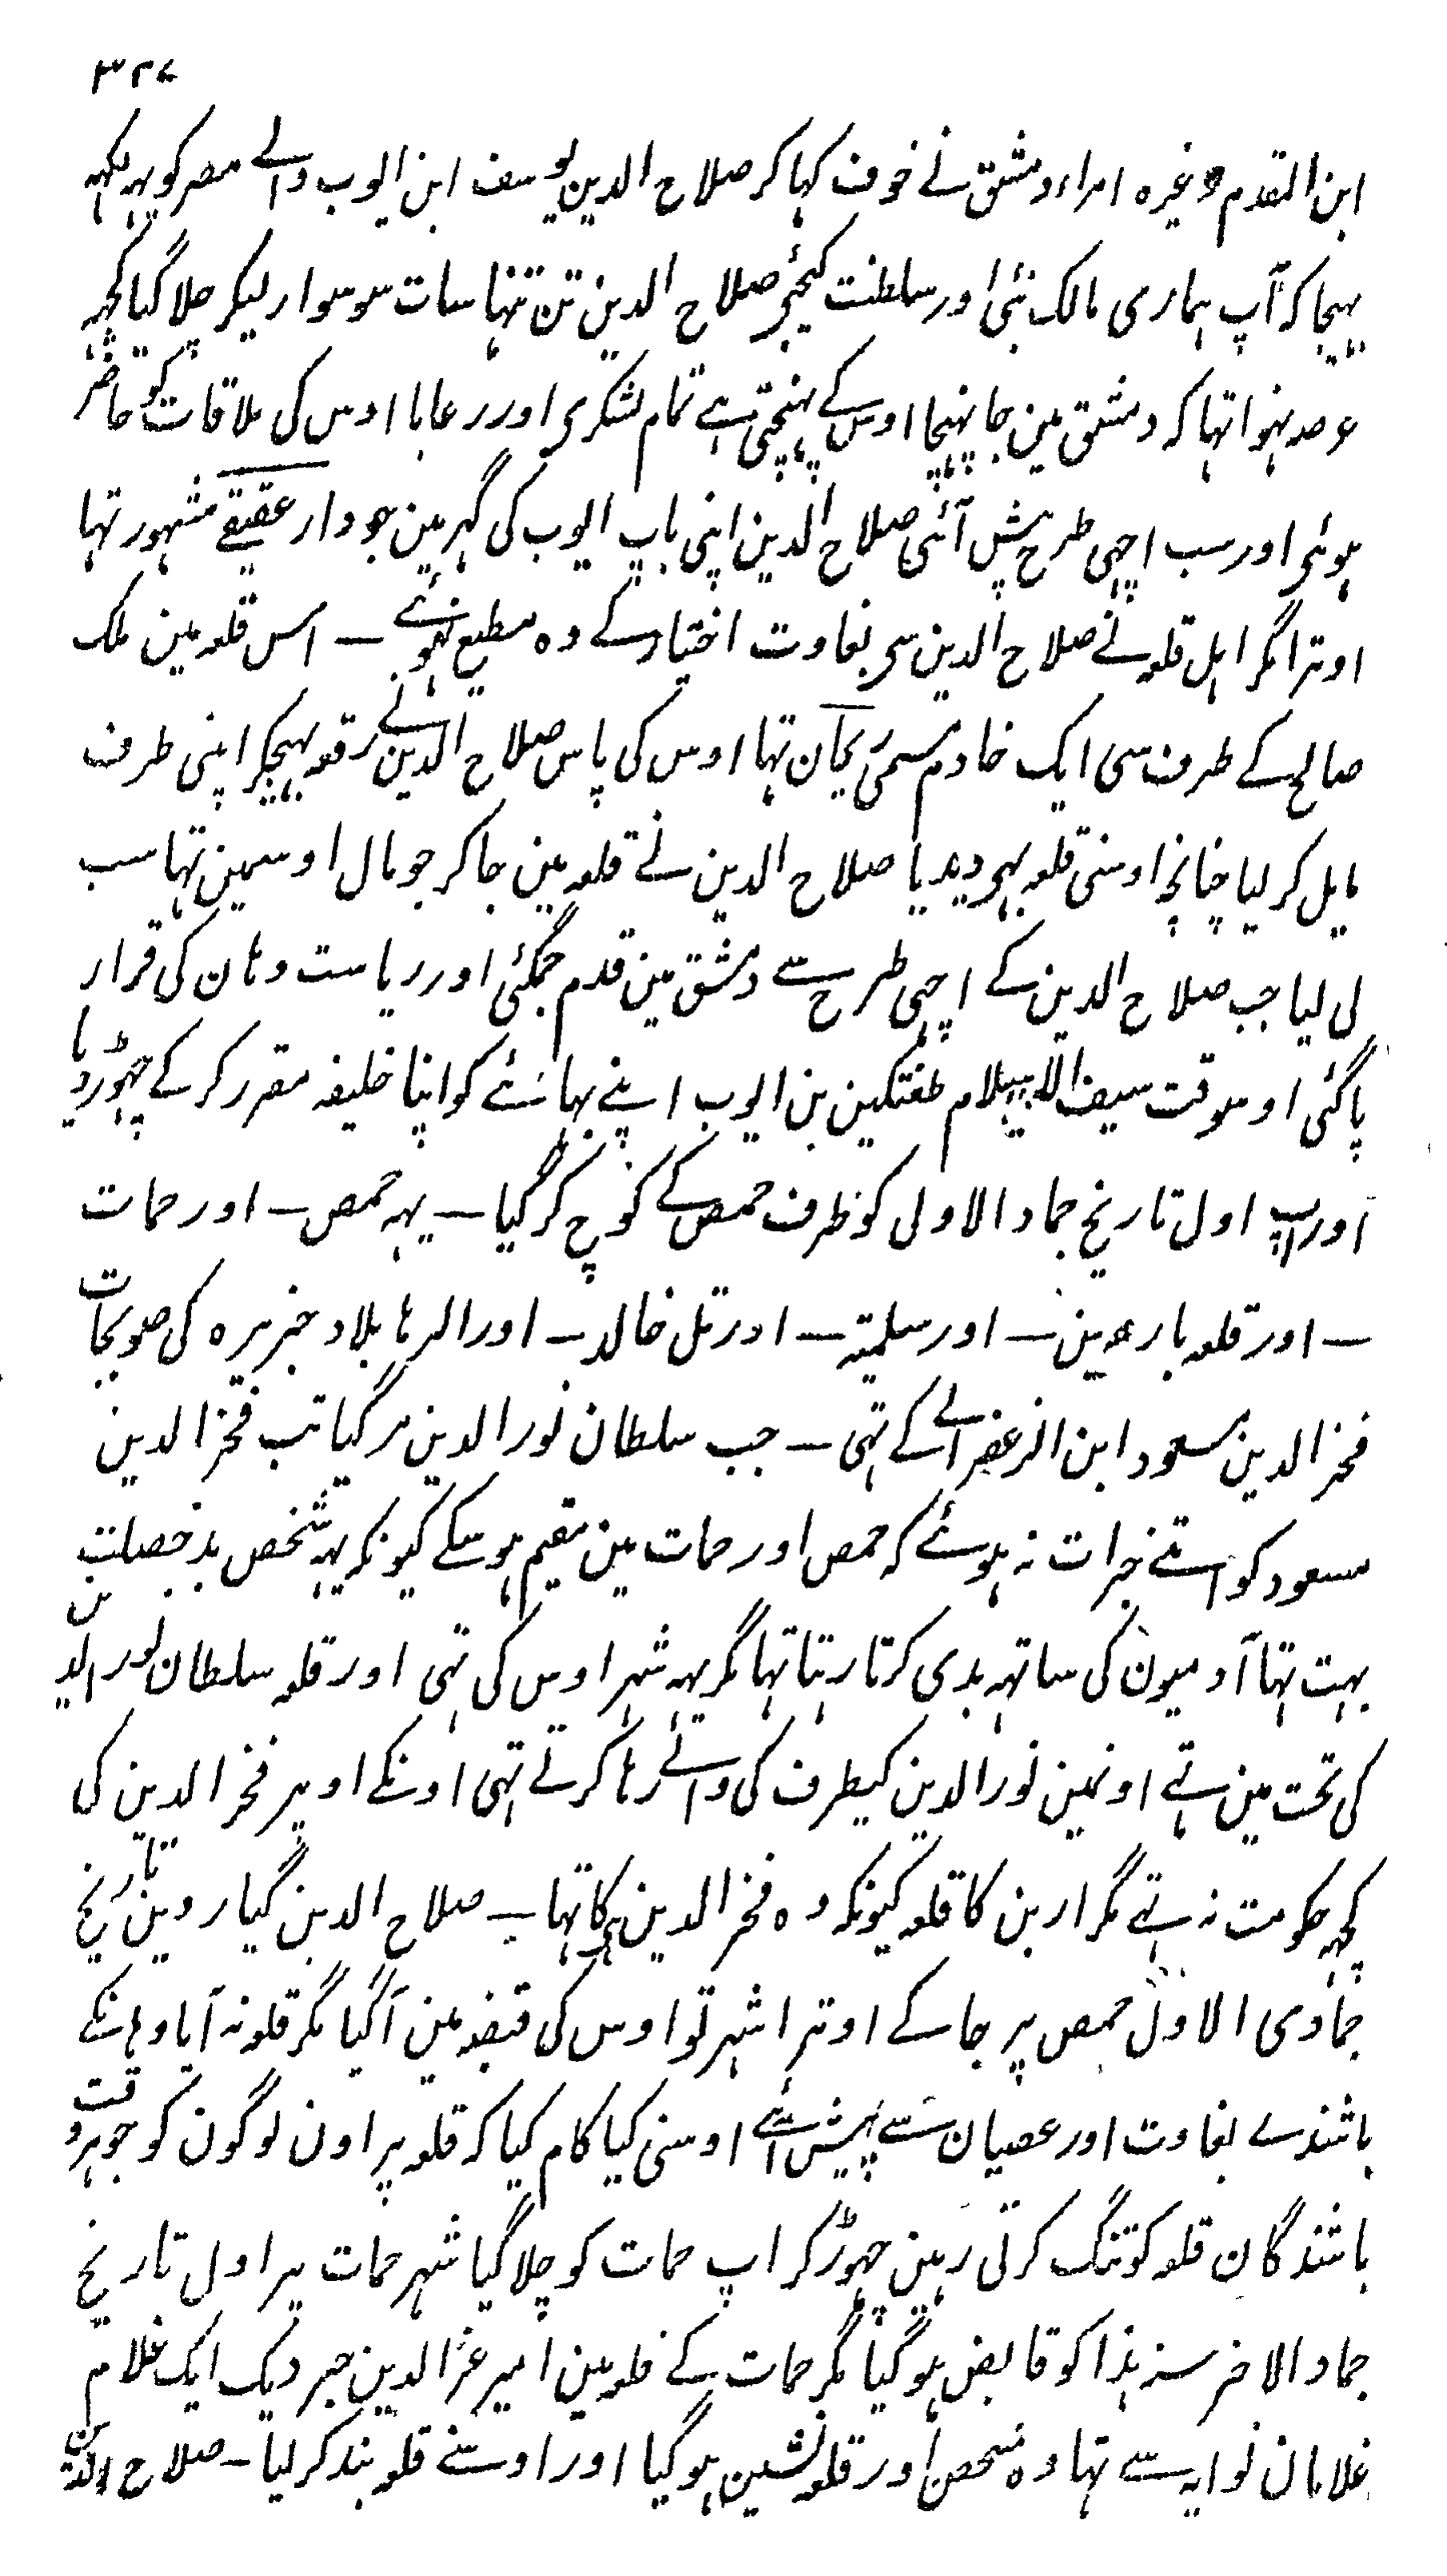 ۳۲۷
ابن المقدم وغیرہ امراء دمشق نے خوف کہا کر صلاح الدین یوسف ابن ایوب والے مصر کو یہہ لکہہ
بہیجا کہ آپ ہماری مالک بنئی اور سلطنت کیجئی صلاح الدین تن تنہا سات سو سوار لیکر چلا گیا کچہہ
عرصہ نہوا تہا کہ دمشق مین جا پہنچا اوس کے پہنچتی ہے تمام لشکری اور رعایا اوس کی ملاقات کو حاضر
ہوئی اور سب اچہی طرح پیش آئی صلاح الدین اپنی باپ ایوب کی گہر مین جو دار عقیقے مشہور تہا
اوترا مگر اہل قلعہ نے صلاح الدین سی بغاوت اختیار کے وہ مطیع نہوئے ــ اس قلعہ مین ملک
صالح کے طرف سی ایک خادم مسمی ریحان تہا اوس کی پاس صلاح الدین نے رقعہ بہیجکر اپنی طرف
مایل کر لیا چنانچہ اوسنی قلعہ بہی دیدیا صلاح الدین نے قلعہ مین جا کر جو مال اوسمین تہا سب
لی لیا جب صلاح الدین کے اچہی طرح سے دمشق مین قدم جمگئی اور ریاست وہان کی قرار
پا گئی اوسوقت سیف الاسلام طغتکین بن ایوب اپنے بہائے کو اپنا خلیفہ مقرر کر کے چہوڑ دیا
اور اپ اول تاریخ جماد الاولی کو طرف حمص کے کوچ کر گیا ــ یہہ حمص ــ اور حمات
ــ اور قلعہ بارعین ــ اور سلمیتہ ــ اور تل خالد ــ اور الرہا بلاد جزیرہ کی صوبجات
فخر الدین مسعود ابن الزعفرانے کے تہی ــ جب سلطان نور الدین مر گیا تب فخر الدین
مسعود کو اتنے جرات نہ ہوئے کہ حمص اور حمات مین مقیم ہو سکے کیونکہ یہہ شخص بد خصلت
بہت تہا آدمیون کی ساتہہ بدی کرتا رہتا تہا مگر یہہ شہر اوس کی تہی اور قلعہ سلطان نور الدین
کی تحت مین تہے اونمین نور الدین کیطرف کی والے رہا کرتے تہی اونکے اوپر فخر الدین کی
کچہہ حکومت نہ تہے مگر ارین کا قلعہ کیونکہ وہ فخر الدین ہی کا تہا ــ صلاح الدین گیاروین تاریخ
جمادی الاول حمص پر جا کے اوترا شہر تو اوس کی قبضہ مین آ گیا مگر قلعہ نہ آیا وہانکے
باشندے بغاوت اور عصیان سے پیش آئے اوسنی کیا کام کیا کہ قلعہ پر اون لوگون کو جو ہر وقت
باشندگان قلعہ کو تنگ کرتی رہین چہوڑ کر اپ حمات کو چلا گیا شہر حمات پر اول تاریخ
جماد الاخر سنہ ہذا کو قابض ہو گیا مگر حمات کے قلعہ مین امیر عز الدین جردیک ایک غلام
غلامان نوایہ سے تہا وہ متحصن اور قلعہ نشین ہو گیا اور اوسنے قلعہ بند کر لیا ــ صلاح الدین